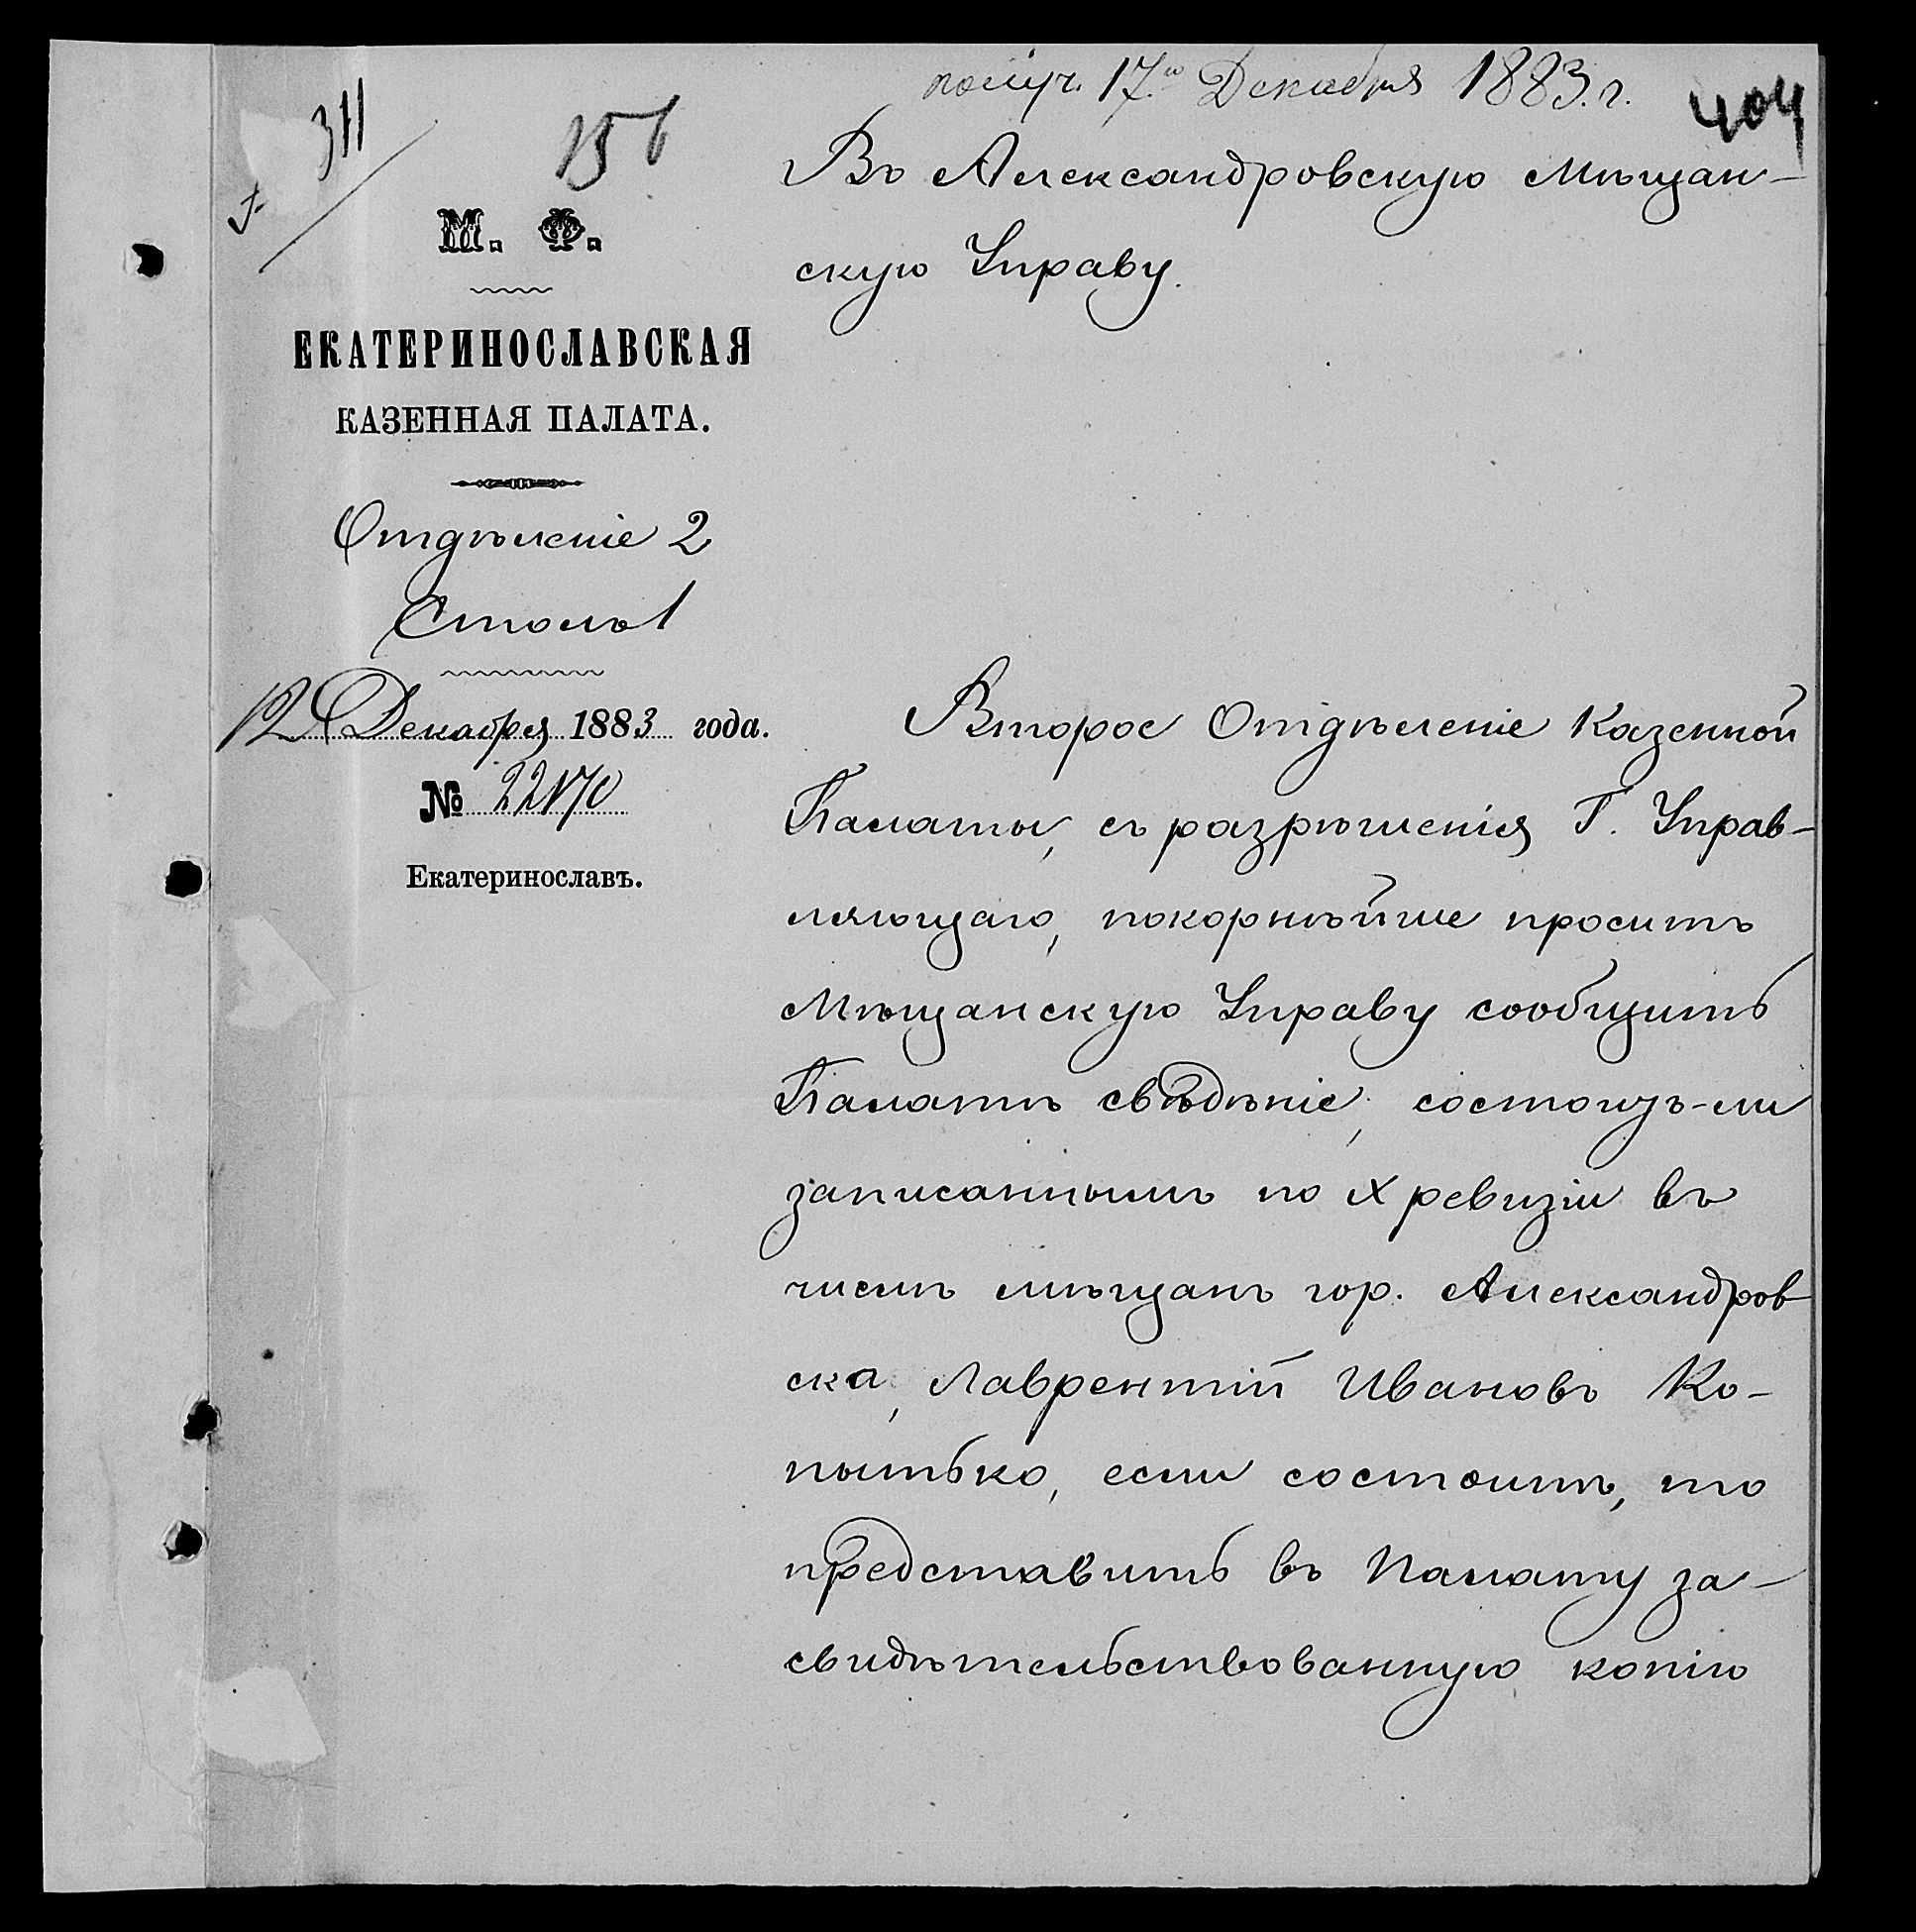 получ. 17го Декабря 1883. г.
404
311
156
М. Ф.
ЕКАТЕРИНОСЛАВСКАЯ
КАЗЕННАЯ ПАЛАТА.
Отдѣленіе 2
Столъ 1
12 Декабря 1883 года.
№ 22170
Екатеринославъ.
Въ Александровскую Мѣщан-
скую Управу.
Второе Отдѣленіе Казенной
Палаты, съ разрѣшенія Г. Управ-
ляющаго, покорнѣйше проситъ
Мѣщанскую Управу сообщить
Палатѣ свѣдѣніе, состоитъ-ли
записаннымъ по X ревизіи въ
числѣ мѣщанъ гор. Александров
ска, Лаврентій Ивановъ Ко-
пытько, если состоитъ, то
представить въ Палату за-
свидѣтельствованную копію